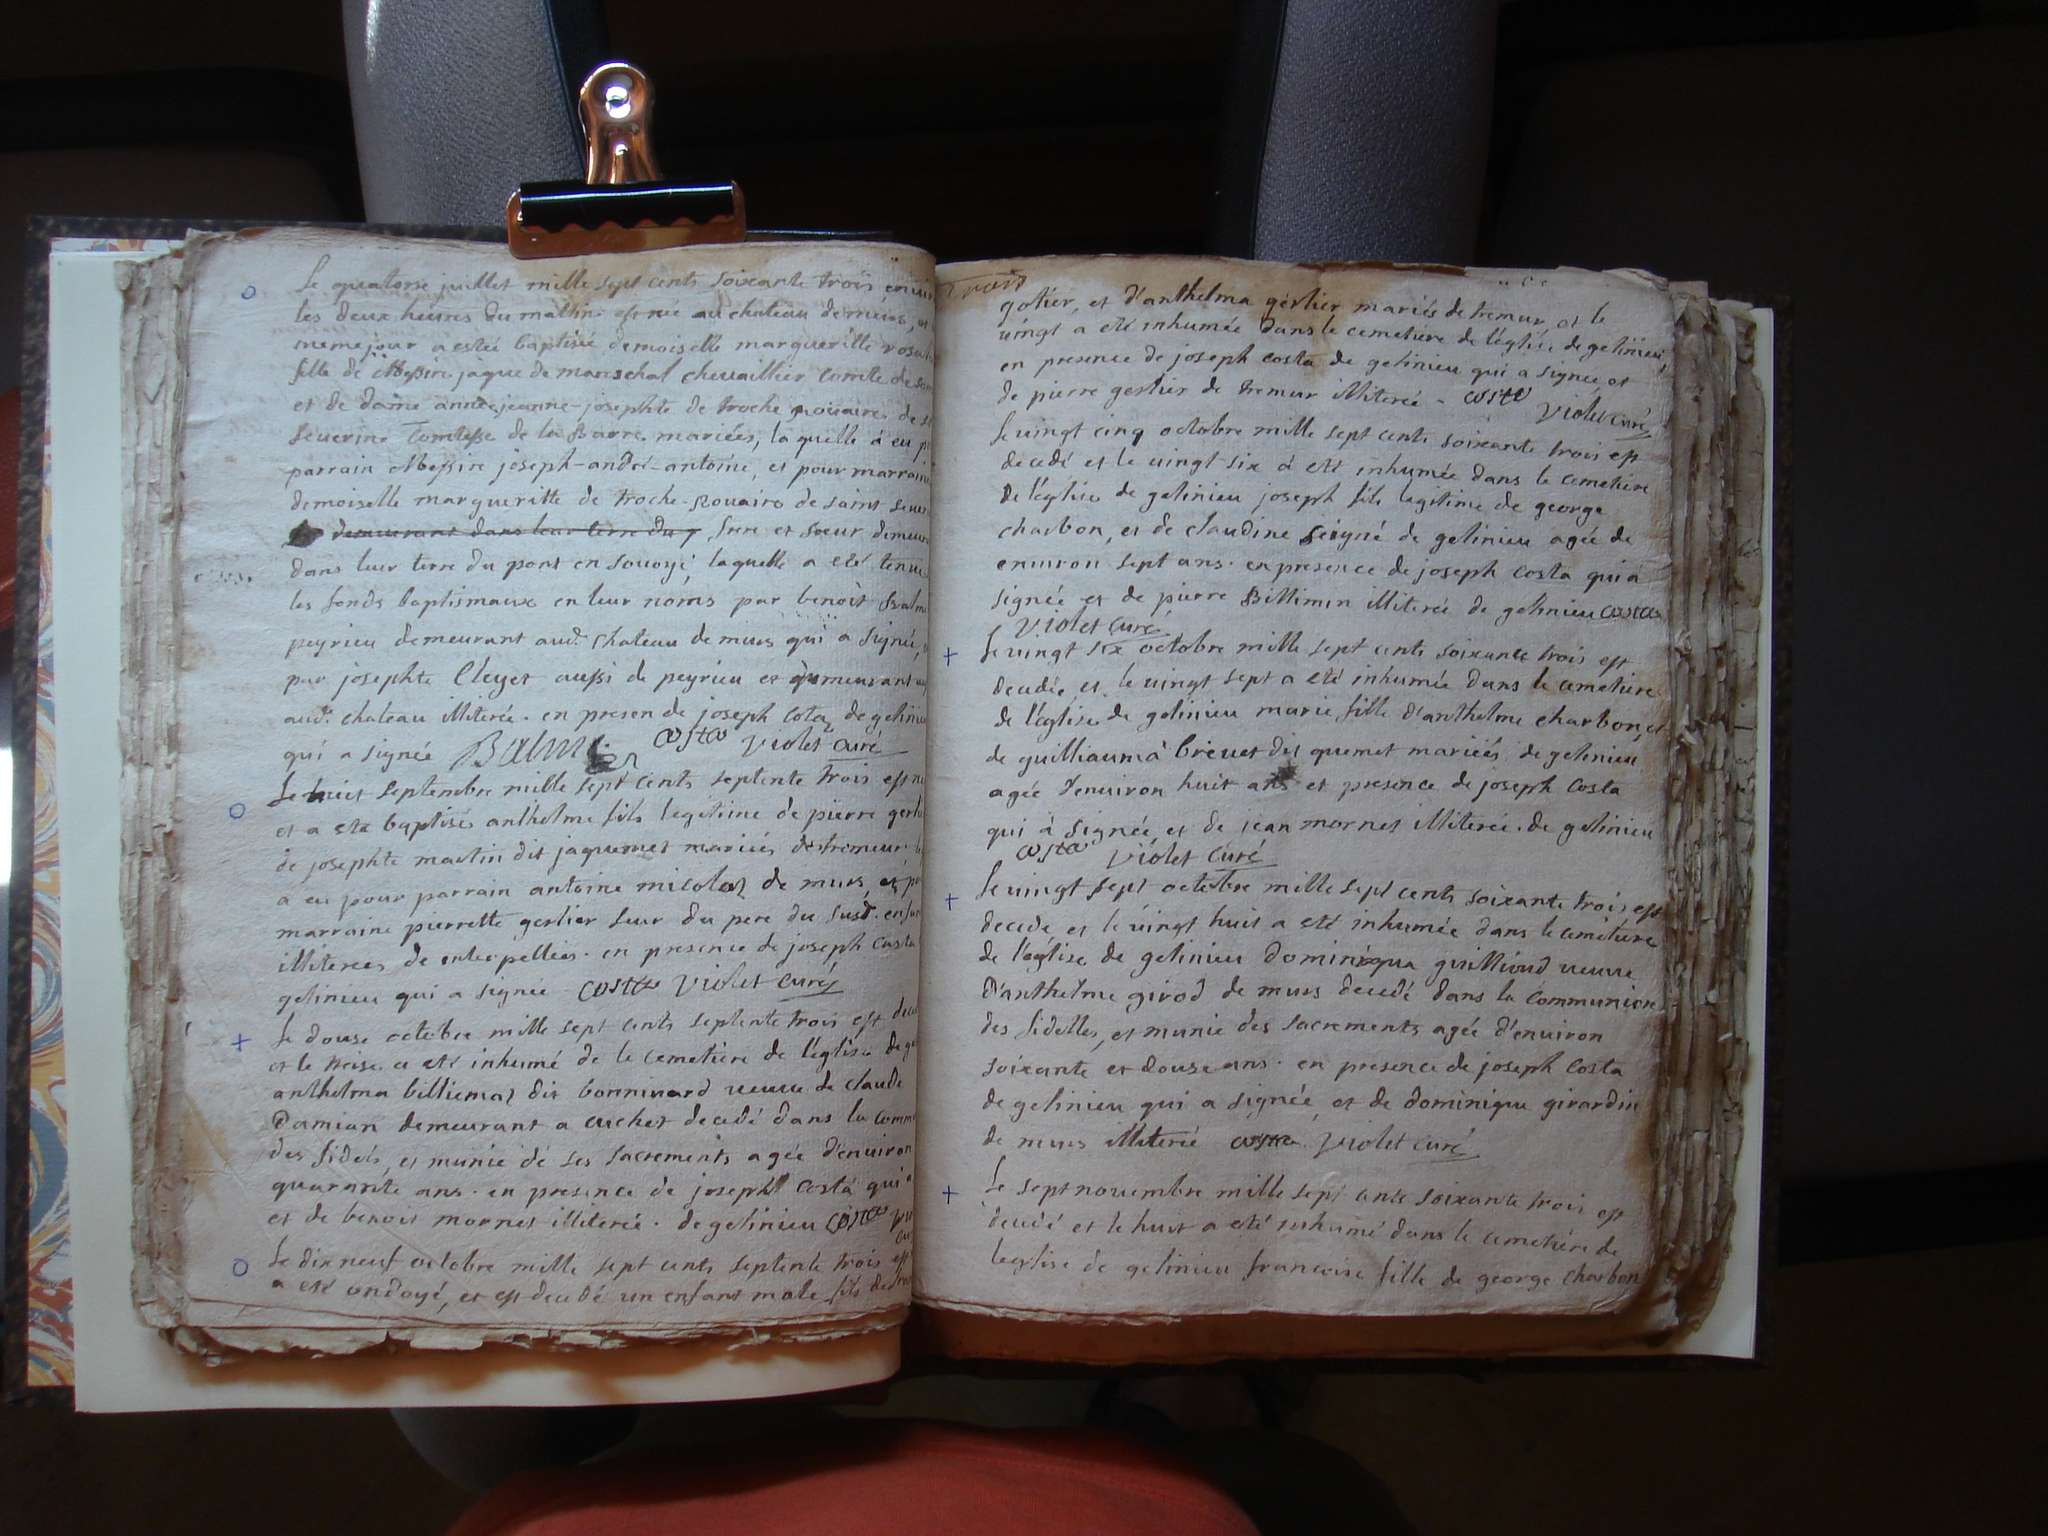 Le quatorse juillet mille sept cents soixante trois environ
les deux heures du matin est née au chateau de murs, et
meme jour a estée baptisée demoiselle margueritte rosalie
fille de Messire jaque de mareschal chevaillier comte de
et de dame anne jeanne-josephte de troche rouaire de
severine Comtesse de la Barre mariées, la quelle à eu p
parrain Messire joseph-andré-antoine, et pour marraine
demoiselle margueritte de troche-Rouaire de saint seve
demeurant dans leur terre du p frere et soeur demeur
dans leur terre du pont en Savoye, laquelle a eté tenue
les fonds baptismaux en leur noms par benoit Balme
peyrieu demeurant aud. chateau de murs qui a signé,
par josephte Cleyet aussi de peyrieu et demeurant
aud. chateau illiterée. en presen de joseph Cotaz de gelinieu
qui a signée Balme costa violet curé
Le huit septembre mille sept cents septente trois est né
et a eté baptisés anthelme fils legitime de pierre gerlier
de josephte martin dit jaquemet mariées de tremeur
a eu pour parrain antoine micolaz de murs, et p
marraine pierrette gerlier seur du pere du susd. enfan
illiterées de interpellées. en presence de joseph costa
gelinieu qui a signée costa violet curé
Le douse octobre mille sept cents septente trois est dece
et le treise a eté inhumé de le cemetiere de l'église de ge
anthelma billiemaz dit bonnivard veuve de claude
Damian demeurant a cuchet decedé dans la comm
des fidels, et munie dé ses sacrements agée d'environ
quarante ans. en presence de joseph costa qui a
et de benoit mornet illiterée. de gelinieu costa
Le dix neuf octobre mille sept cents septente trois est
a eté ondoyé, et est decedé un enfant male fils de
Trois
gotier, et d'anthelma gerlier mariés de tremur, et le
vingt a eté inhumée dans le cemetiere de l'église de gelinieu
en presence de joseph costa de gelinieu qui a signée, et
de pierre gerlier de tremur illiterée - costa
violet curé
Le vingt cinq octobre mille sept cents soixante trois est
decedé et le vingt six à eté inhumée dans le cemetiere
de l'église de gelinieu joseph fils legitime de george
charbon, et de claudine seigné de gelinieu agée de
environ sept ans. en presence de joseph costa qui a
signée et de pierre Billimin illiterée de gelinieu costa
violet curé
Le vingt six octobre mille sept cents soixante trois est
decedée, et le vingt sept a eté inhumée dans le cemetiere
de l'église de gelinieu marie fille d'anthelme charbon, et
de guilliauma brevet dit quemet mariées de gelinieu
agée d'environ huit ans et presence de joseph costa
qui à signée, et de jean mornet illiterée. de gelinieu
costa violet curé
Le vingt sept octobre mille sept cents soixante trois est
decede, et le vingt huit a eté inhumée dans le cemetiere
de l'église de gelinieu dominiqua guillioud veuve
d'anthelme girod de murs decedé dans la communion
des fidelles, et munie des sacrements agée d'environ
soixante et douse ans. en presence de joseph costa
de gelinieu qui a signéé, et de dominique girardin
de murs illiterié costa. violet curé
Le sept novembre mille sept cents soixante trois est
decedé et le huit a eté inhumé dans le cemetiere de
leglise de gelinieu francoise fille de george charbon